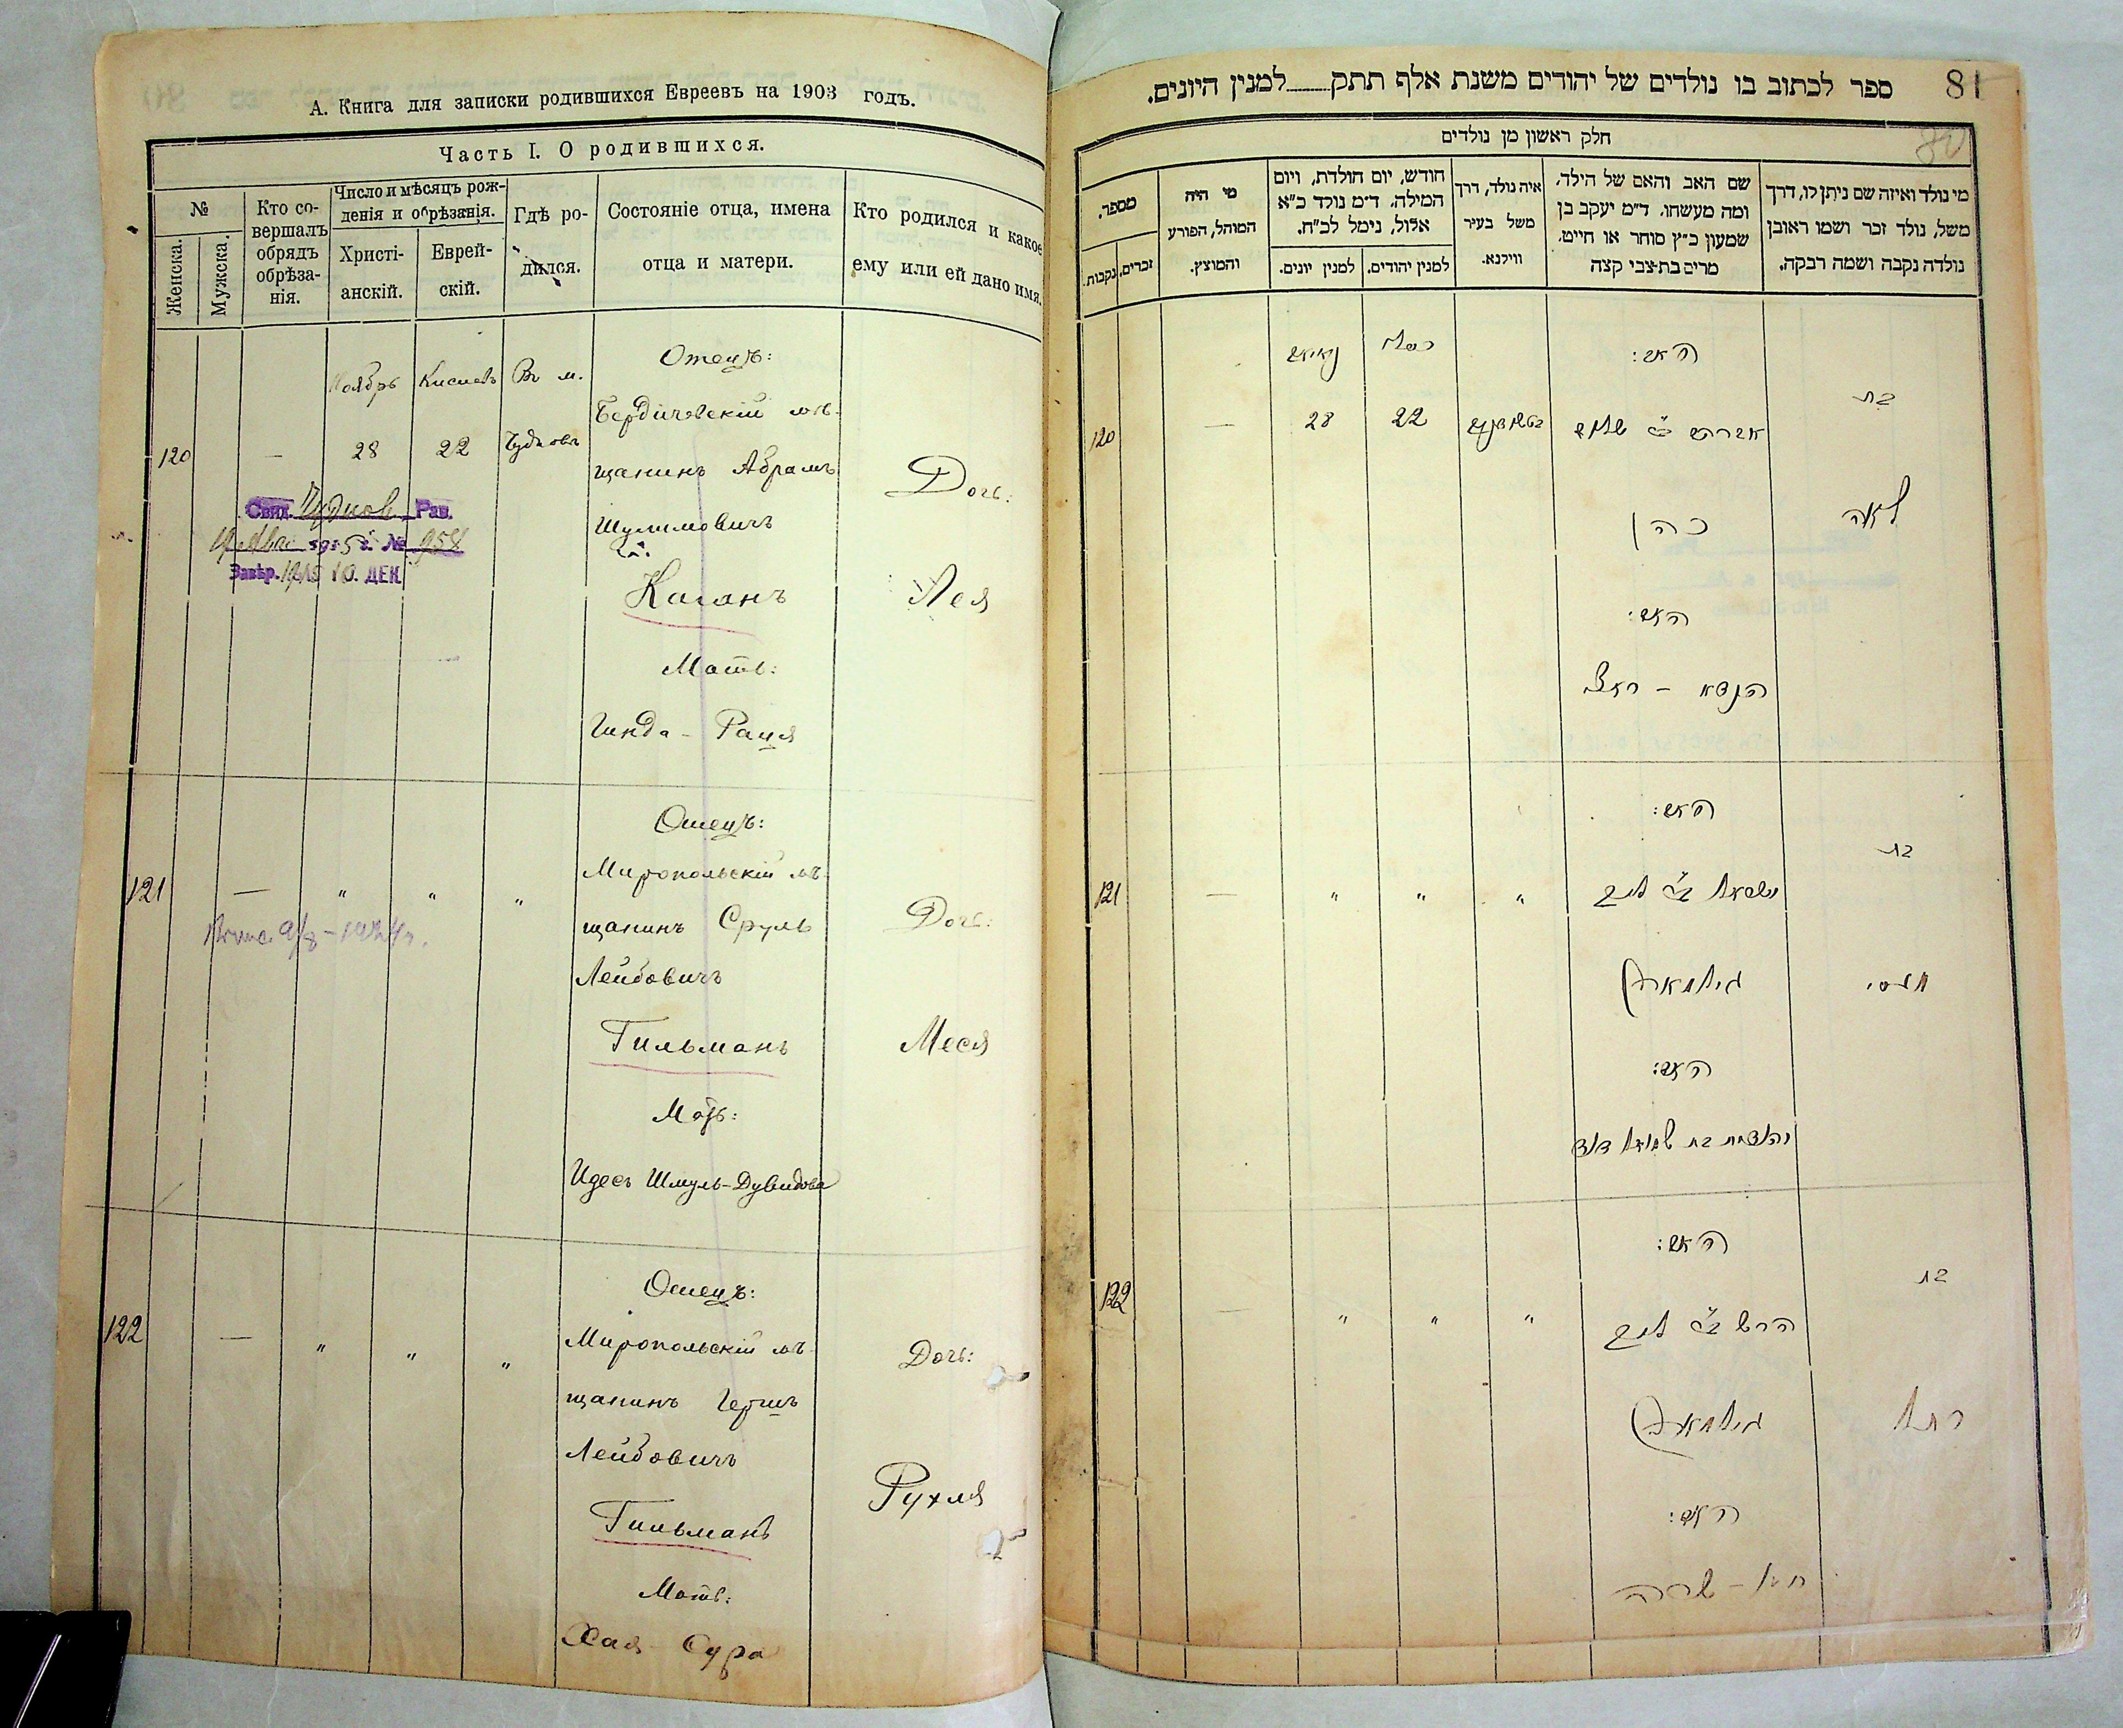 А. Книга для записки родившихся Евреевъ на 1903 годъ.
Часть I. О родившихся.
№
Женска.
Мужска.
Кто со-
вершалъ
обрядъ
обрѣза-
нія.
Число и мѣсяцъ рож-
денія и обрѣзанія.
Христі-
анскій.
Еврей-
скій.
Гдѣ ро-
дился.
Состояніе отца, имена
отца и матери.
Кто родился и какое
ему или ей дано имя.
120
—
Ноябрь
28
Кислевъ
22
Въ м.
Чудновъ
Отецъ:
Бердичевскій мѣ-
щанинъ Абрамъ
Шулимовичъ
Каганъ
Мать:
Гинда - Рация
Дочь:
Лея
Свид. Чуднов Рав.
№ 958
Завѣр. 1915 10. ДЕК.
121
—
"
"
"
Отецъ:
Миропольскій мѣ-
щанинъ Сруль
Лейбовичъ
Гильманъ
Мать:
Идесъ Шмуль-Дувидова
Дочь:
Меся
122
—
"
"
"
Отецъ:
Миропольскій мѣ-
щанинъ Гершъ
Лейбовичъ
Гильманъ
Мать:
Хая - Сура
Дочь:
Рухля
81
ספר לכתוב בו נולדים של יהודים משנת אלף תתק למנין היונים.
חלק ראשון מן נולדים
מספר.
נקבות.
זכרים.
מי היה
המוהל, הפורע
והמוצץ.
חודש, יום הולדת, ויום
המילה. ד״מ נולד כ״א
אלול, נימל לכ״ח.
למנין יונים.
למנין יהודים.
איה נולד, דרך
משל בעיר
ווילנא.
שם האב והאם של הילד.
ומה מעשהו. ד״מ יעקב בן
שמעון כ״ץ סוחר או חייט.
מרים בת-צבי קצה
מי נולד ואיזה שם ניתן לו, דרך
משל, נולד זכר ושמו ראובן
נולדה נקבה ושמה רבקה.
120
—
28
כסלו
22
האב:
אברהם ב״ר שלום
כהן
האם:
הינדא - ראצי
בת
לאה
121
—
"
"
"
האב:
ישראל ב״ר לייב
גילמאן
האם:
יהודית בת שמואל דוד
בת
מעסי
122
—
"
"
"
האב:
הרש ב״ר לייב
גילמאן
האם:
חיא - שרה
בת
רחל